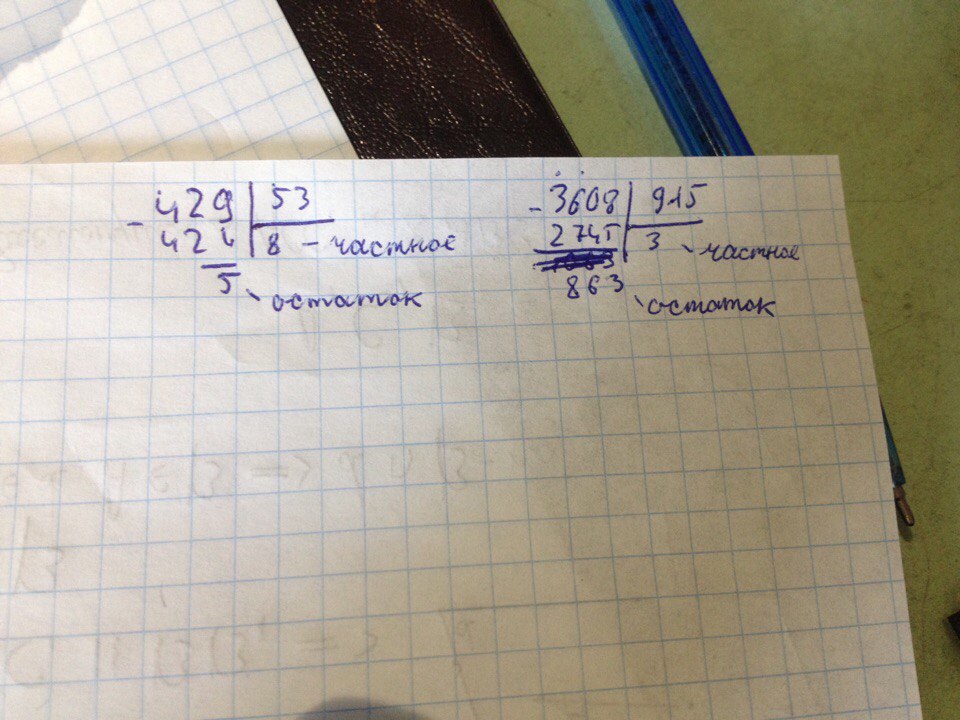 429 53
- 424 8 - частное
5 остаток
3608 915
- 2745 3 частное
863 остаток